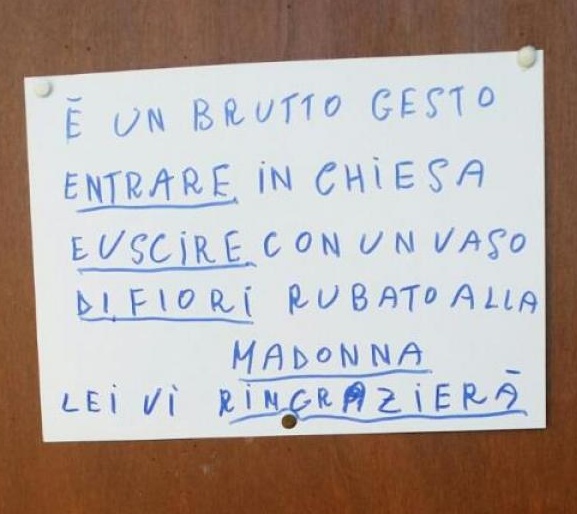 È UN BRUTTO GESTO
ENTRARE IN CHIESA
E USCIRE CON UN VASO
DI FIORI RUBATO ALLA
MADONNA
LEI VI RINGRAZIERÀ